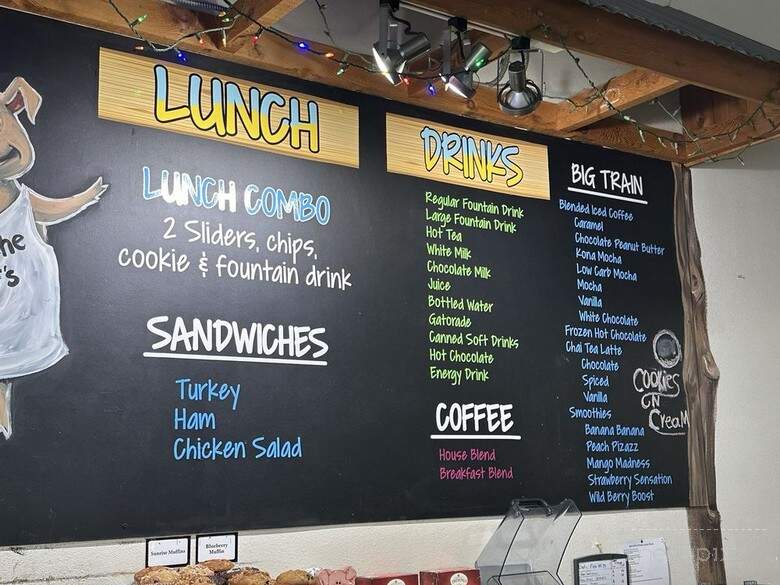 he
's
LUNCH
LUNCH COMBO
2 Sliders, chips,
cookie & fountain drink
SANDWICHES
Turkey
Ham
Chicken Salad
DRINKS
Regular Fountain Drink
Large Fountain Drink
Hot Tea
White Milk
Chocolate Milk
Juice
Bottled Water
Gatorade
Canned Soft Drinks
Hot Chocolate
Energy Drink
COFFEE
House Blend
Breakfast Blend
BIG TRAIN
Blended Iced Coffee
Caramel
Chocolate Peanut Butter
Kona Mocha
Low Carb Mocha
Mocha
Vanilla
White Chocolate
Frozen Hot Chocolate
Chai Tea Latte
Chocolate
Spiced
Vanilla
Smoothies
Banana Banana
Peach Pizazz
Mango Madness
Strawberry Sensation
Wild Berry Boost
Cookies
CN
Cream
Sunrise Muffins
Blueberry
Muffin